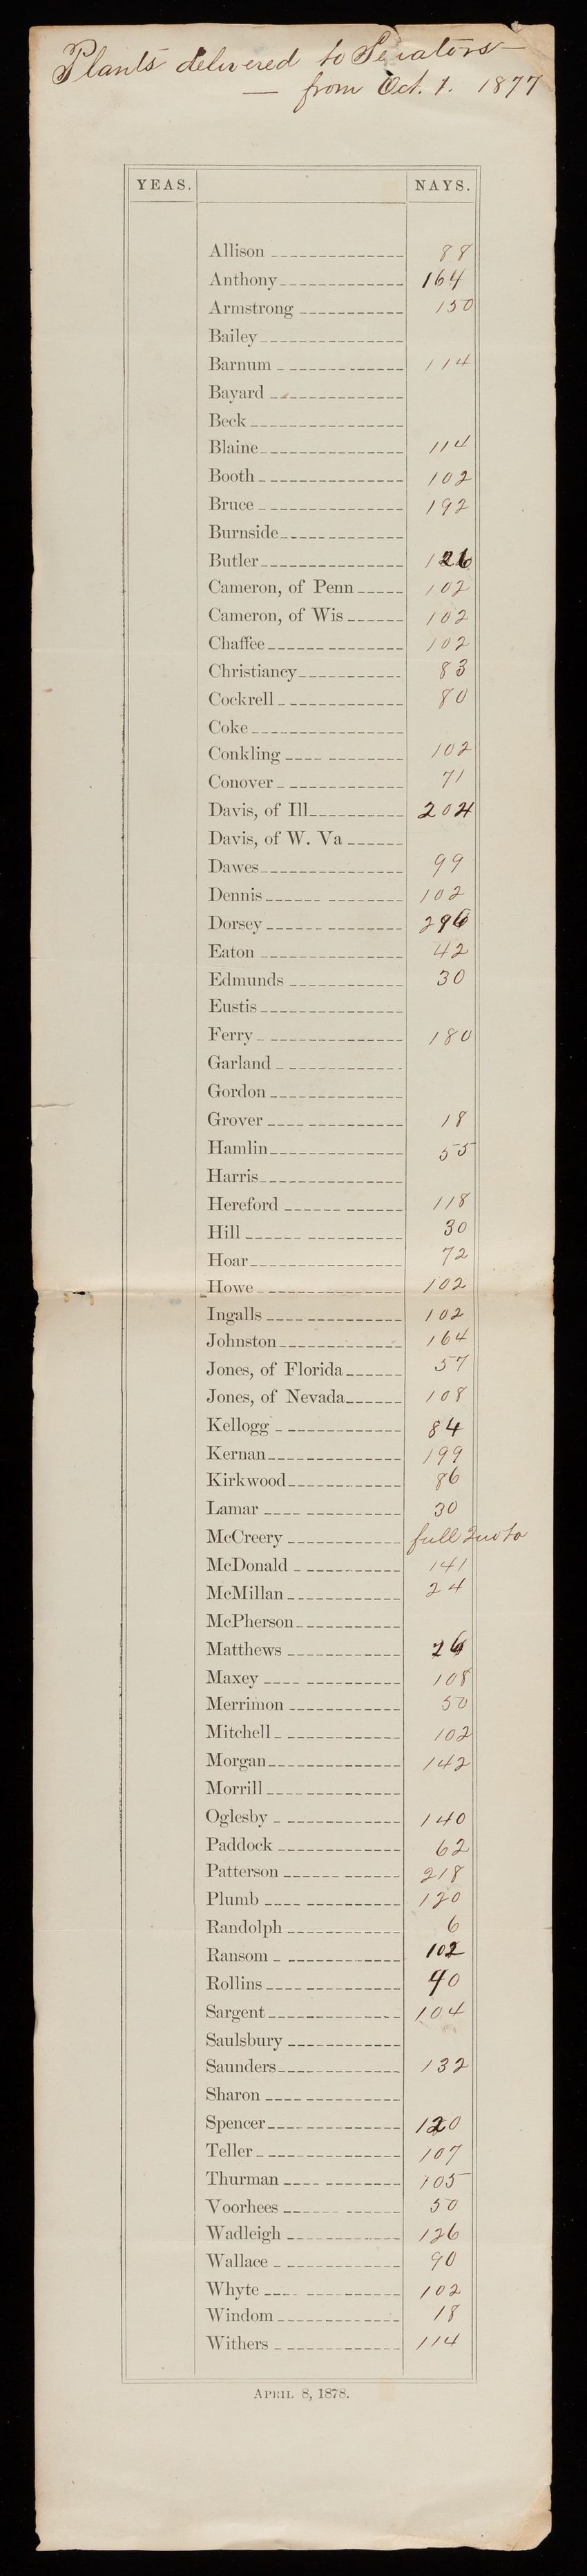 Plants delivered to Senators—
— from Oct. 1. 1877
YEAS. NAYS.
Allison 88
Anthony 164
Armstrong 150
Bailey
Barnum 114
Bayard
Beck
Blaine 114
Booth 102
Bruce 192
Burnside
Butler 126
Cameron, of Penn 102
Cameron, of Wis 102
Chaffee 102
Christiancy 83
Cockrell 80
Coke
Conkling 102
Conover 71
Davis, of Ill 204
Davis, of W. Va
Dawes 99
Dennis 102
Dorsey 296
Eaton 42
Edmunds 30
Eustis
Ferry 180
Garland
Gordon
Grover 18
Hamlin 55
Harris
Hereford 118
Hill 30
Hoar 72
Howe 102
Ingalls 102
Johnston 164
Jones, of Florida 57
Jones, of Nevada 108
Kellogg 84
Kernan 199
Kirkwood 86
Lamar 30
McCreery full quota
McDonald 141
McMillan 24
McPherson
Matthews 26
Maxey 108
Merrimon 50
Mitchell 102
Morgan 142
Morrill
Oglesby 140
Paddock 62
Patterson 218
Plumb 120
Randolph 6
Ransom 102
Rollins 90
Sargent 104
Saulsbury
Saunders 132
Sharon
Spencer 120
Teller 107
Thurman 105
Voorhees 50
Wadleigh 126
Wallace 90
Whyte 102
Windom 18
Withers 114
APRIL 8, 1878.